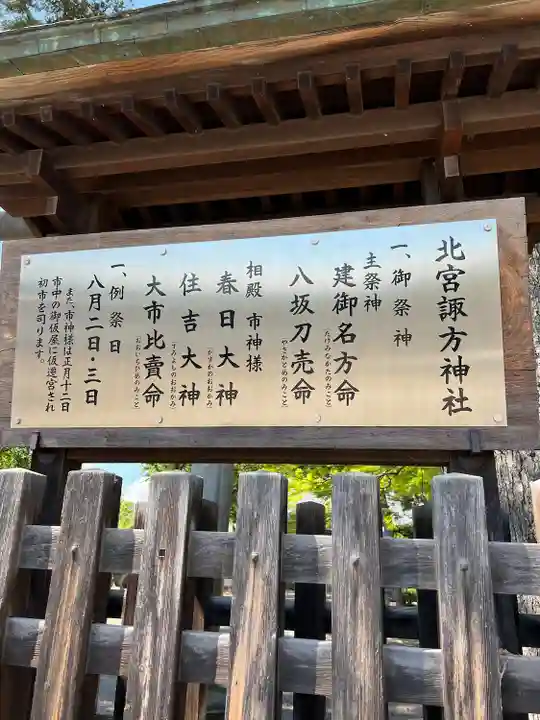 北宮諏方神社
一、御祭神
主祭神
建御名方命
（たけみなかたのみこと）
八坂刀売命
（やさかとめのみこと）
相殿 市神様
春日大神
（かすがのおおかみ）
住吉大神
（すみよしのおおかみ）
大市比賣命
（おおいちひめのみこと）
一、例祭日
八月二日・三日
また、市神様は正月十二日
市中の御仮屋に仮遷宮され
初市を司ります。